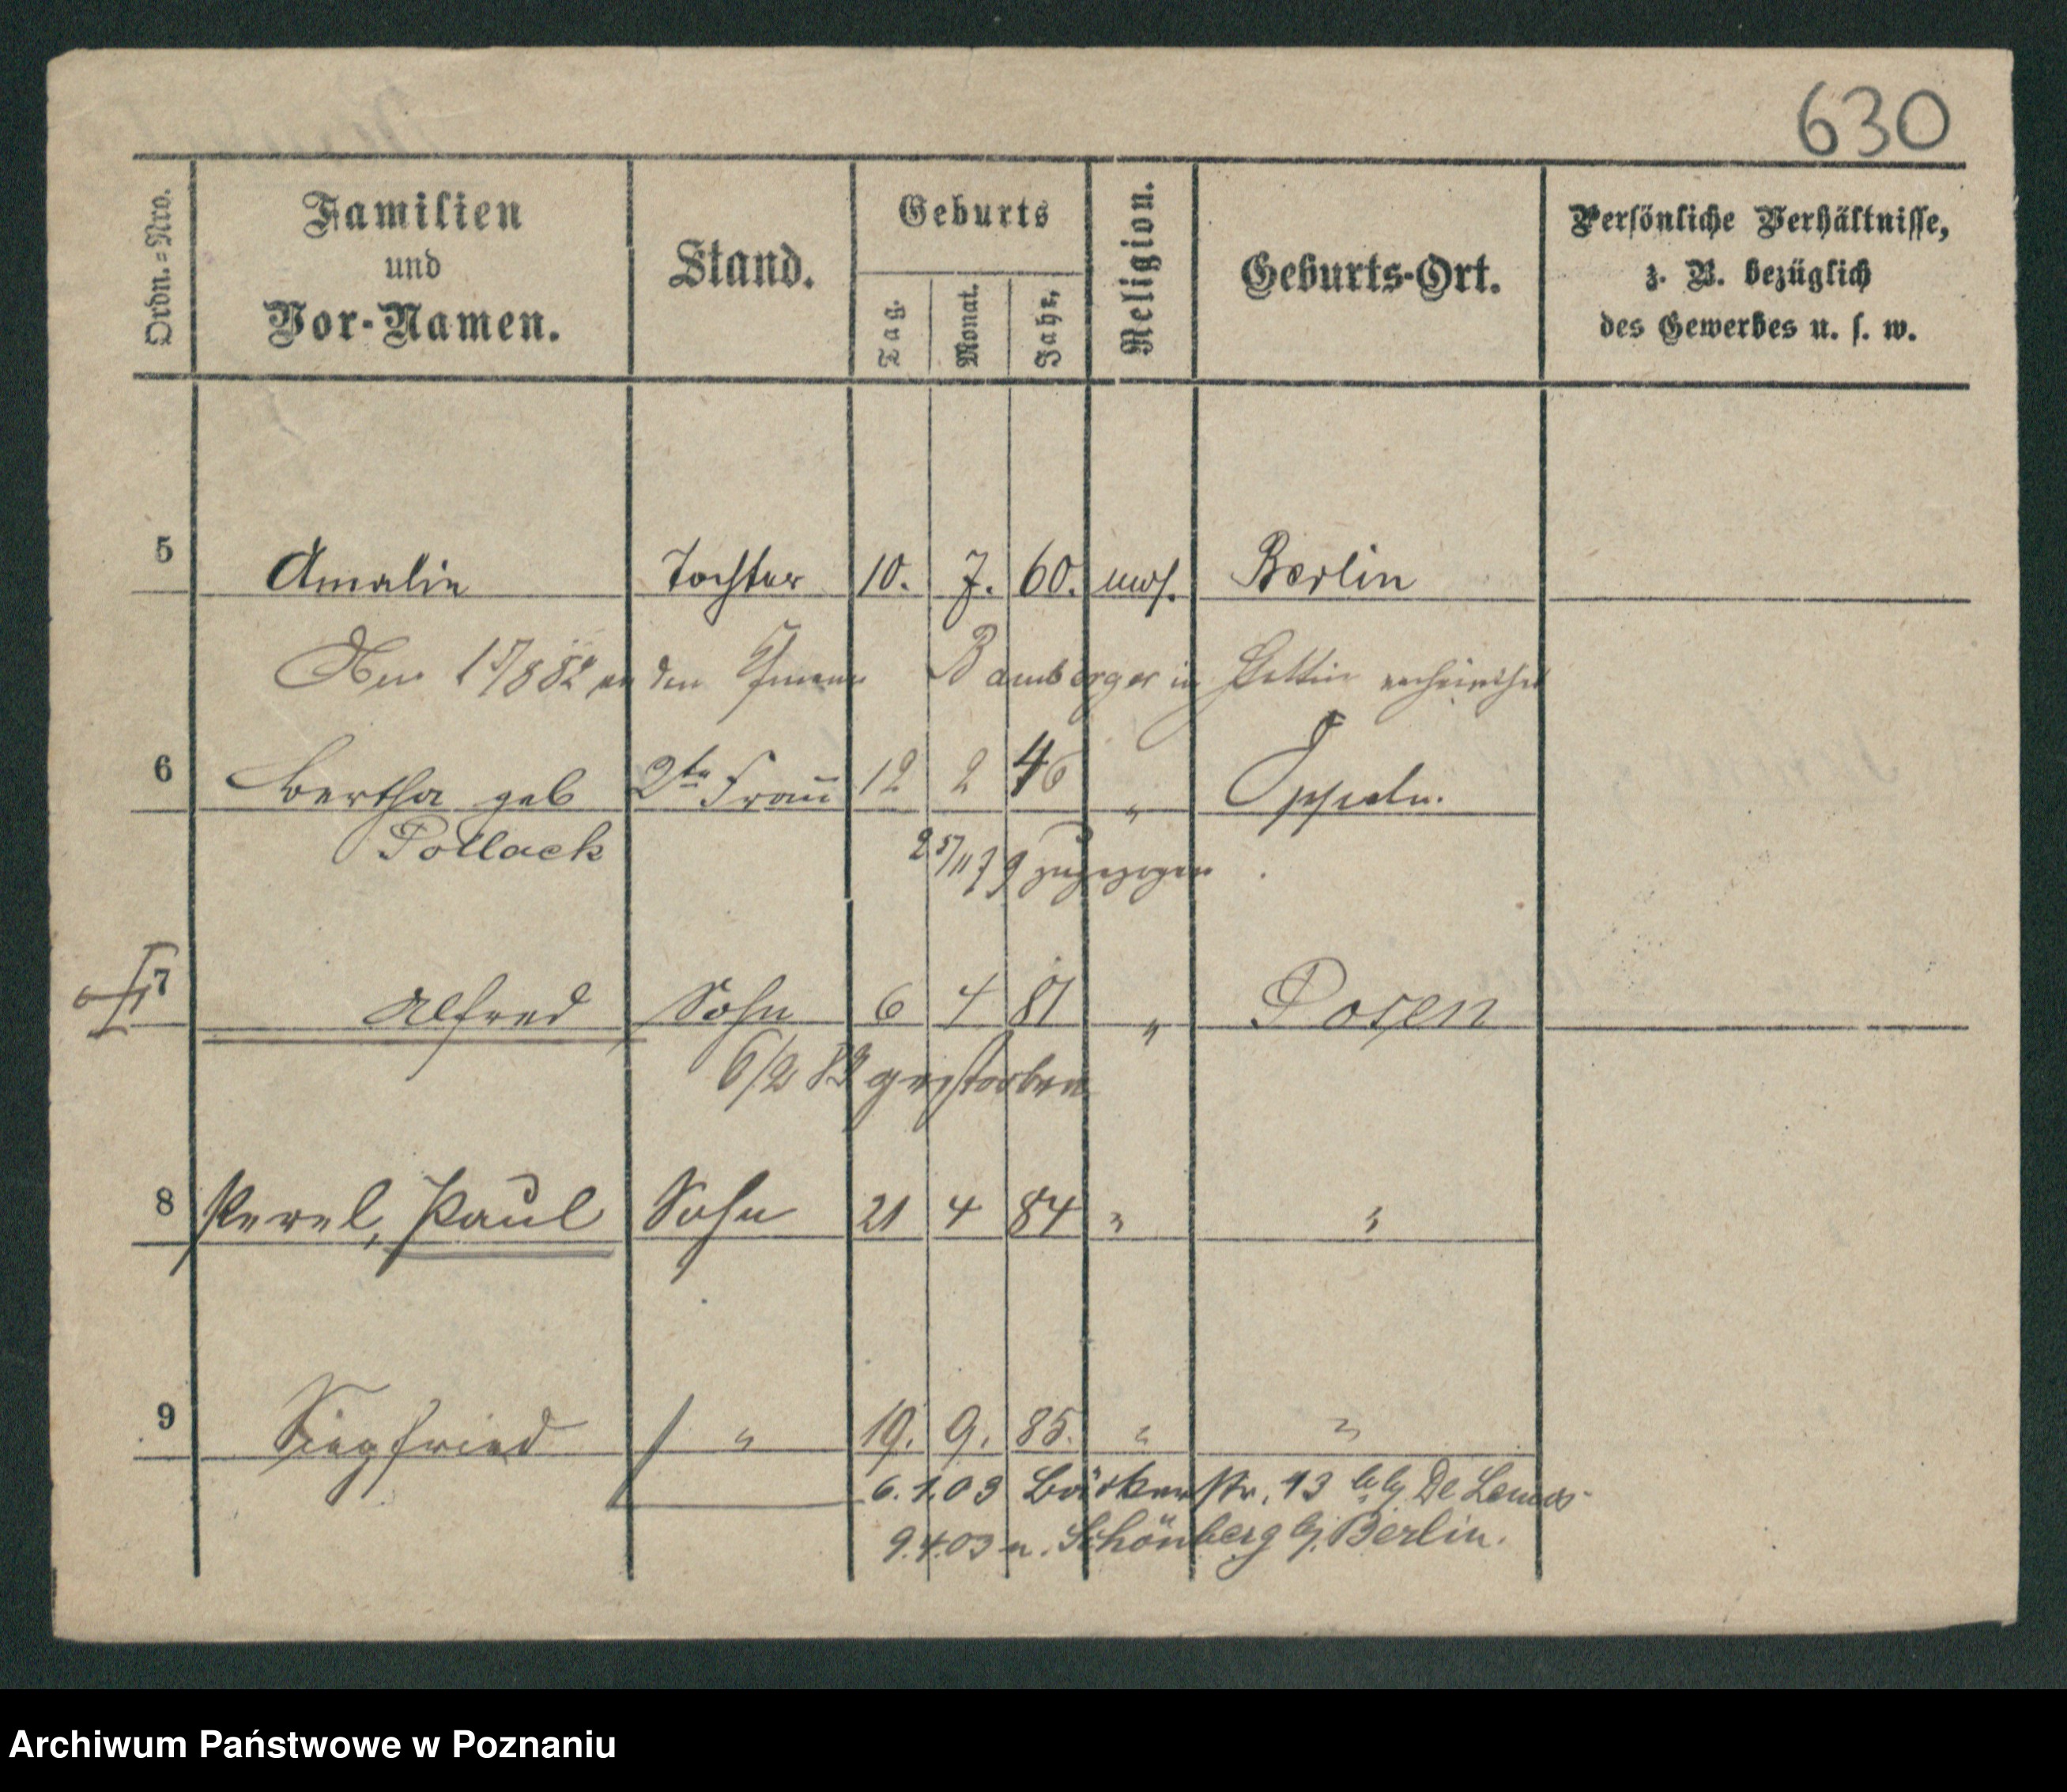 630
Ordn.=Nro.
Familien
und
Vor-Namen.
Stand.
Geburts
Tag.
Monat.
Jahr.
Religion.
Geburts-Ort.
Persönliche Verhältnisse,
z. B. bezüglich
des Gewerbes u. s. w.
5 Amalie Tochter 10. 7. 60. mos. Berlin
1882 an den Bamberger in Stettin verheirathet
6 Bertha geb 2te Frau 12 2 46 " Oppeln.
Pollack
25/11 79 zugezogen
7 Alfred Sohn 6 4 81 " Posen
6/2 82 gestorben
8 Paul Sohn 21 4 84 " "
9 Siegfried " 19. 9. 85. " "
6.1.03 Bäckerstr. 13 De Lemos
9.4.03 n. Schönberg b. Berlin.
Archiwum Państwowe w Poznaniu